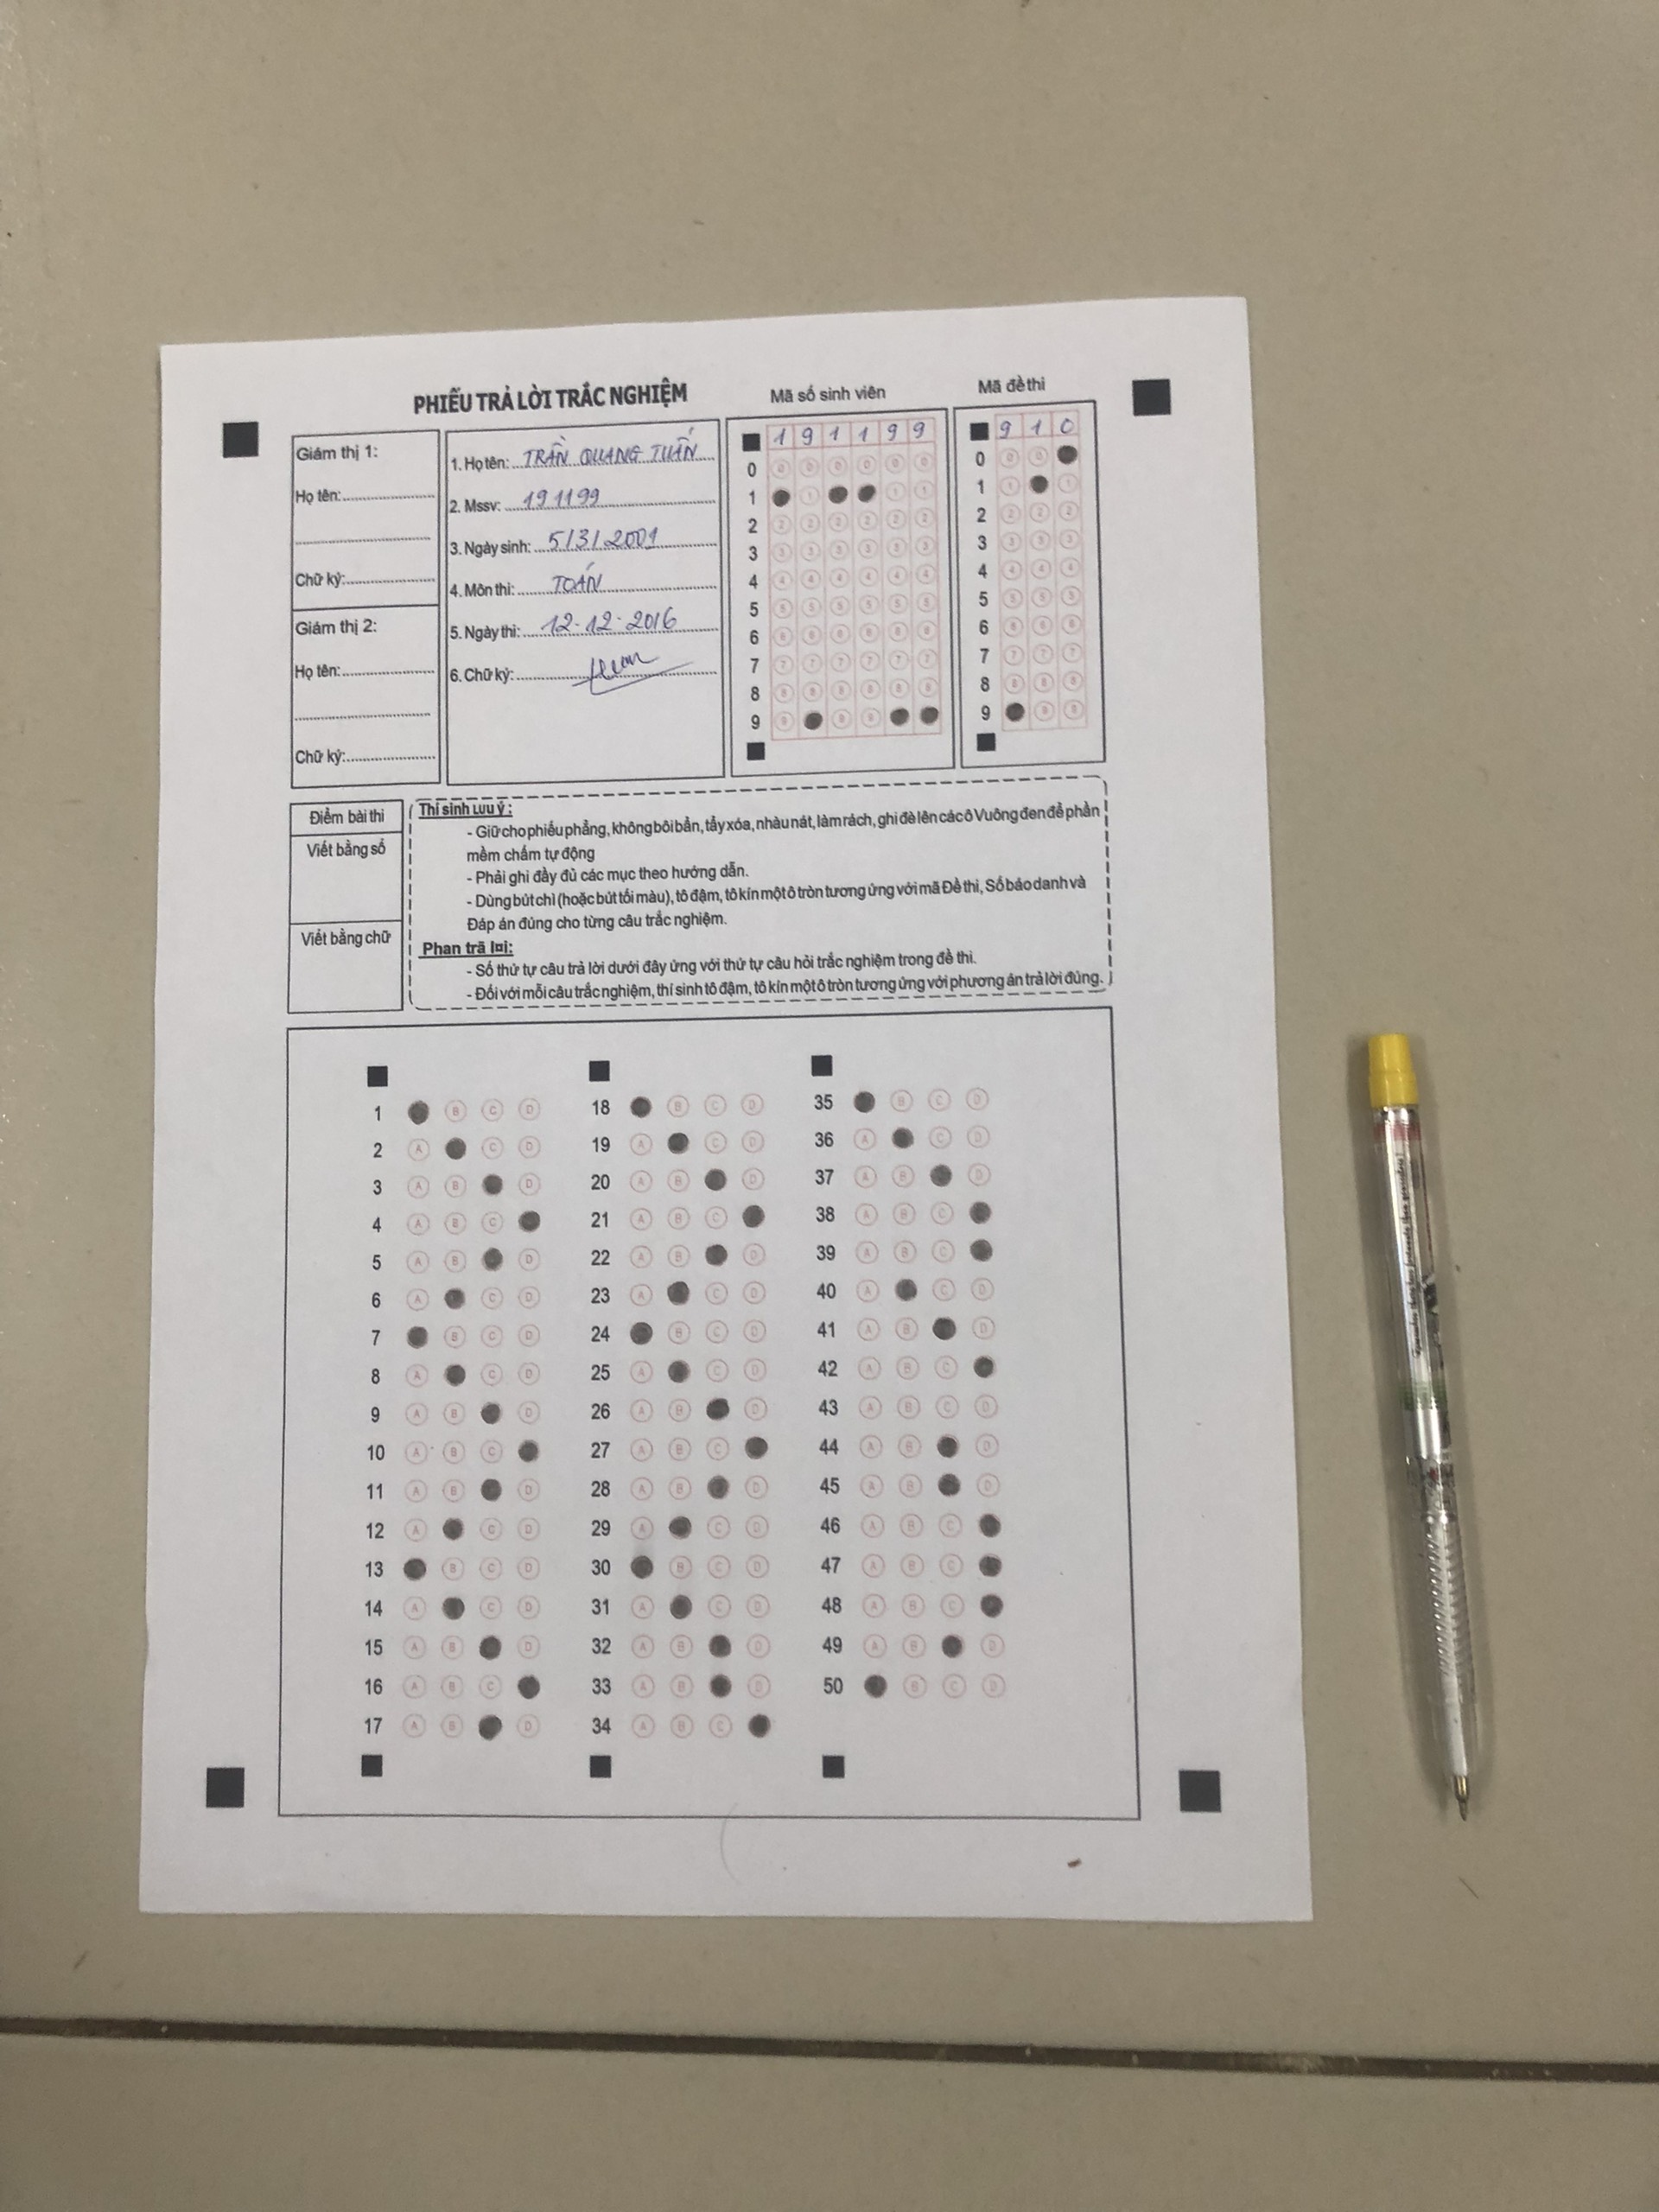 PHIẾU TRẢ LỜI TRẮC NGHIỆM
Giám thị 1:
Họ tên:
Chữ ký:
Giám thị 2:
Họ tên:
Chữ ký:
1. Họ tên: TRẦN QUANG TUẤN
2. Mssv: 191199
3. Ngày sinh: 5/3/2001
4. Môn thi: TOÁN
5. Ngày thi: 12-12-2016
6. Chữ ký:
Mã số sinh viên
1 9 1 1 9 9
0 0 0 0 0 0 0
1 1 1 1
2 2 2 2 2 2 2
3 3 3 3 3 3 3
4 4 4 4 4 4 4
5 5 5 5 5 5 5
6 6 6 6 6 6 6
7 7 7 7 7 7 7
8 8 8 8 8 8 8
9 9 9 9
Mã đề thi
9 1 0
0 0 0
1 1 1
2 2 2 2
3 3 3 3
4 4 4 4
5 5 5 5
6 6 6 6
7 7 7 7
8 8 8 8
9 9 9
Điểm bài thi
Viết bằng số
Viết bằng chữ
Thí sinh lưu ý:
- Giữ cho phiếu phẳng, không bôi bẩn, tẩy xóa, nhàu nát, làm rách, ghi đè lên các ô Vuông đen để phần
mềm chấm tự động
- Phải ghi đầy đủ các mục theo hướng dẫn.
- Dùng bút chì (hoặc bút tối màu), tô đậm, tô kín một ô tròn tương ứng với mã Đề thi, Số báo danh và
Đáp án đúng cho từng câu trắc nghiệm.
Phan trã lời:
- Số thứ tự câu trả lời dưới đây ứng với thứ tự câu hỏi trắc nghiệm trong đề thi.
- Đối với mỗi câu trắc nghiệm, thí sinh tô đậm, tô kín một ô tròn tương ứng với phương án trả lời đúng.
1 B C D
2 A C D
3 A B D
4 A B C
5 A B D
6 A C D
7 B C D
8 A C D
9 A B D
10 A B C
11 A B D
12 A C D
13 B C D
14 A C D
15 A B D
16 A B C
17 A B D
18 B C D
19 A C D
20 A B D
21 A B C
22 A B D
23 A C D
24 B C D
25 A C D
26 A B D
27 A B C
28 A B D
29 A C D
30 B C D
31 A C D
32 A B D
33 A B D
34 A B C
35 B C D
36 A C D
37 A B D
38 A B C
39 A B C
40 A C D
41 A B D
42 A B C
43 A B C D
44 A B D
45 A B D
46 A B C
47 A B C
48 A B C
49 A B D
50 B C D